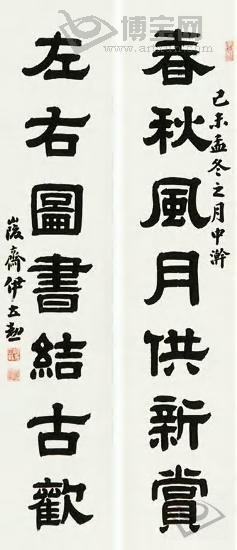 己未孟冬之月中澣
春秋風月供新賞
左右圖書結古歡
峻齋伊立勳
博宝网